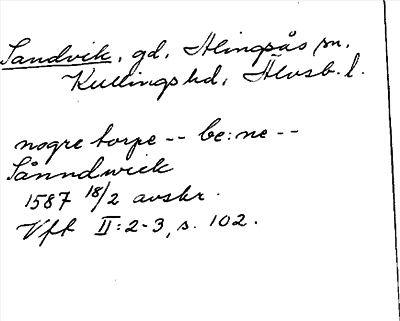 Sandvik, gd, Alingsås sn,
Kullings hd, Älvsb. l.
nogre torpe -- be:ne --
Sånndwick
1587 18/2 avskr.
Vft II:2-3, s. 102.